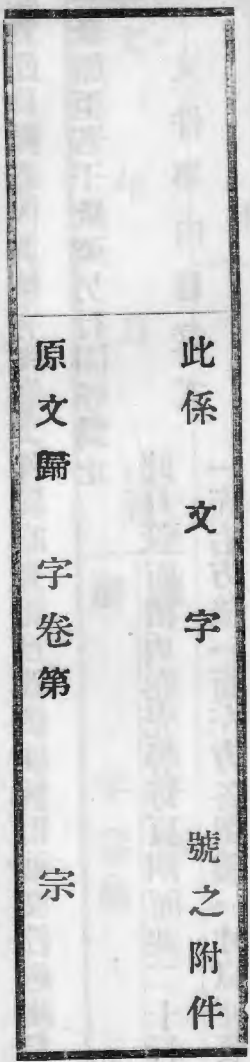 此係　文　字　　號之附件
原文歸　字卷第　　宗